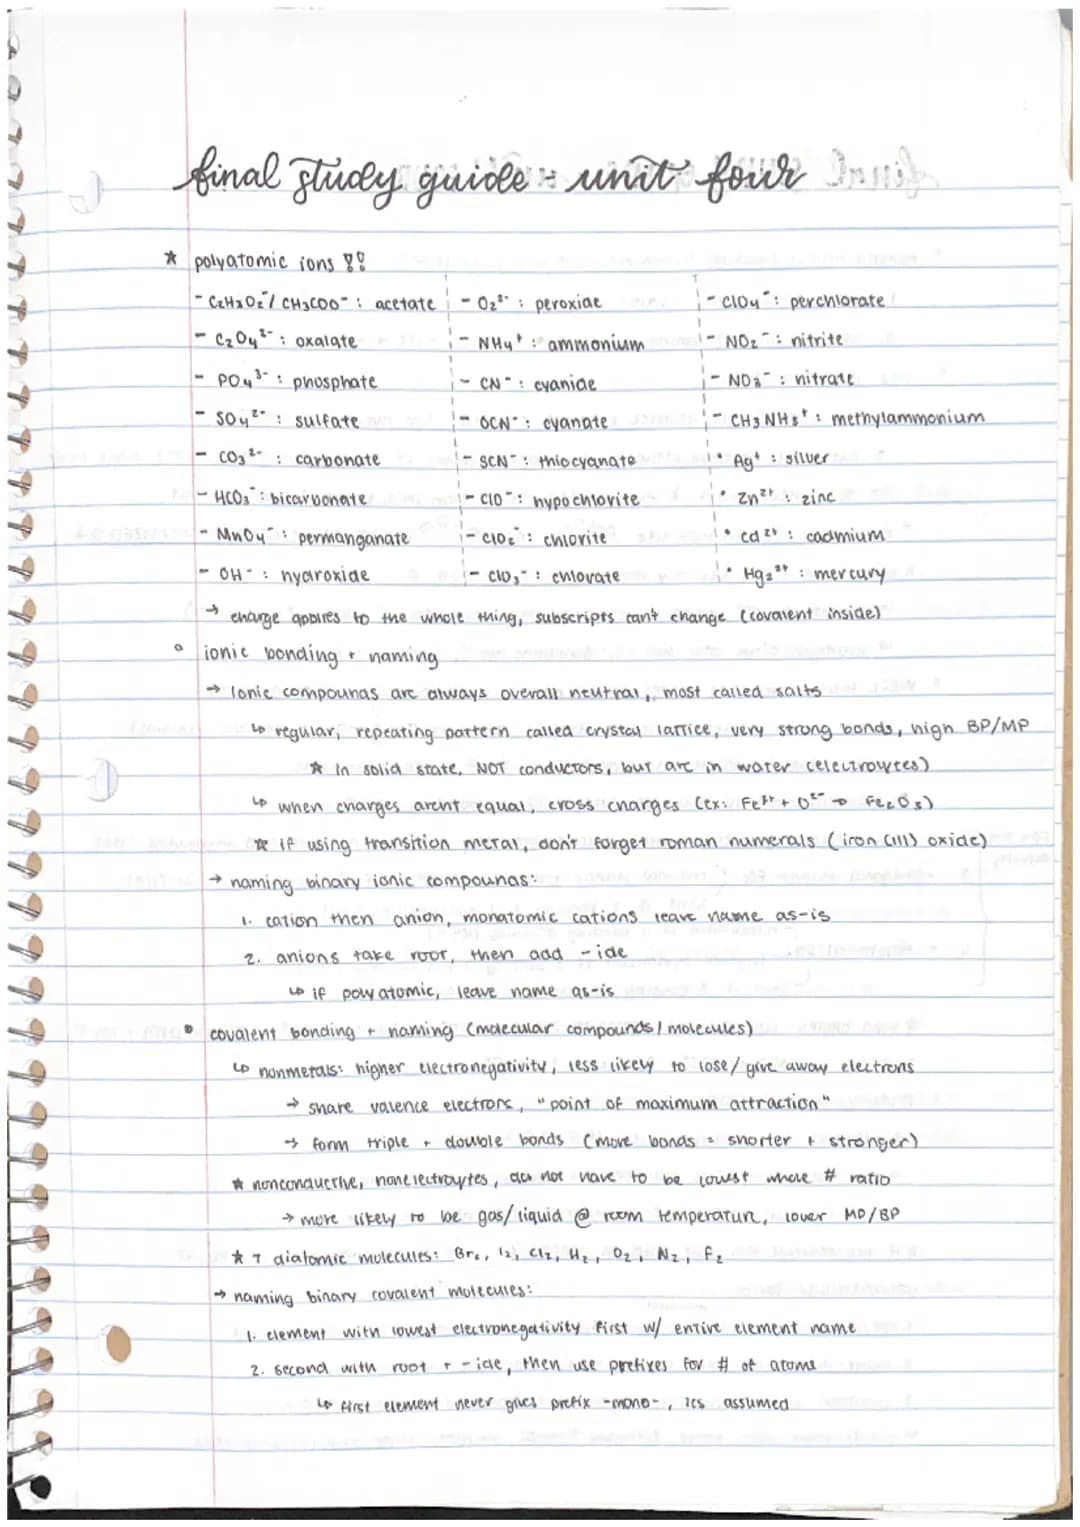 final study guide - unit four
☆ polyatomic ions !!
- C₂H₃O₂⁻/ CH₃COO⁻ : acetate
- C₂O₄²⁻ : oxalate
- PO₄³⁻ : phosphate
- SO₄²⁻ : sulfate
- CO₃²⁻ : carbonate
- HCO₃⁻ : bicarbonate
- MnO₄⁻ : permanganate
- OH⁻ : hydroxide
- O₂²⁻ : peroxide
- NH₄⁺ : ammonium
- CN⁻ : cyanide
- OCN⁻ : cyanate
- SCN⁻ : thiocyanate
- ClO⁻ : hypochlorite
- ClO₂⁻ : chlorite
- ClO₃⁻ : chlorate
- ClO₄⁻ : perchlorate
- NO₂⁻ : nitrite
- NO₃⁻ : nitrate
- CH₃NH₃⁺ : methylammonium
• Ag⁺ : silver
• Zn²⁺ : zinc
• Cd²⁺ : cadmium
• Hg₂²⁺ : mercury
→ charge applies to the whole thing, subscripts can't change (covalent inside)
• ionic bonding + naming
→ Ionic compounds are always overall neutral, most called salts
↳ regular, repeating pattern called crystal lattice, very strong bonds, high BP/MP
☆ In solid state, NOT conductors, but are in water (electrolytes)
↳ when charges arent equal, cross charges (ex: Fe³⁺ + O²⁻ → Fe₂O₃)
☆ if using transition metal, don't forget roman numerals (iron (III) oxide)
→ naming binary ionic compounds:
1. cation then anion, monatomic cations leave name as-is
2. anions take root, then add -ide
↳ if polyatomic, leave name as-is
• covalent bonding + naming (molecular compounds / molecules)
↳ nonmetals: higher electronegativity, less likely to lose/give away electrons
→ share valence electrons, "point of maximum attraction"
→ form triple + double bonds (more bonds = shorter + stronger)
☆ nonconductive, nonelectroytes, do not have to be lowest whole # ratio
→ more likely to be gas/liquid @ room temperature, lower MP/BP
☆ 7 diatomic molecules: Br₂, I₂, Cl₂, H₂, O₂, N₂, F₂
→ naming binary covalent molecules:
1. element with lowest electronegativity first w/ entire element name
2. second with root + -ide, then use prefixes for # of atoms
↳ first element never gets prefix -mono-, its assumed